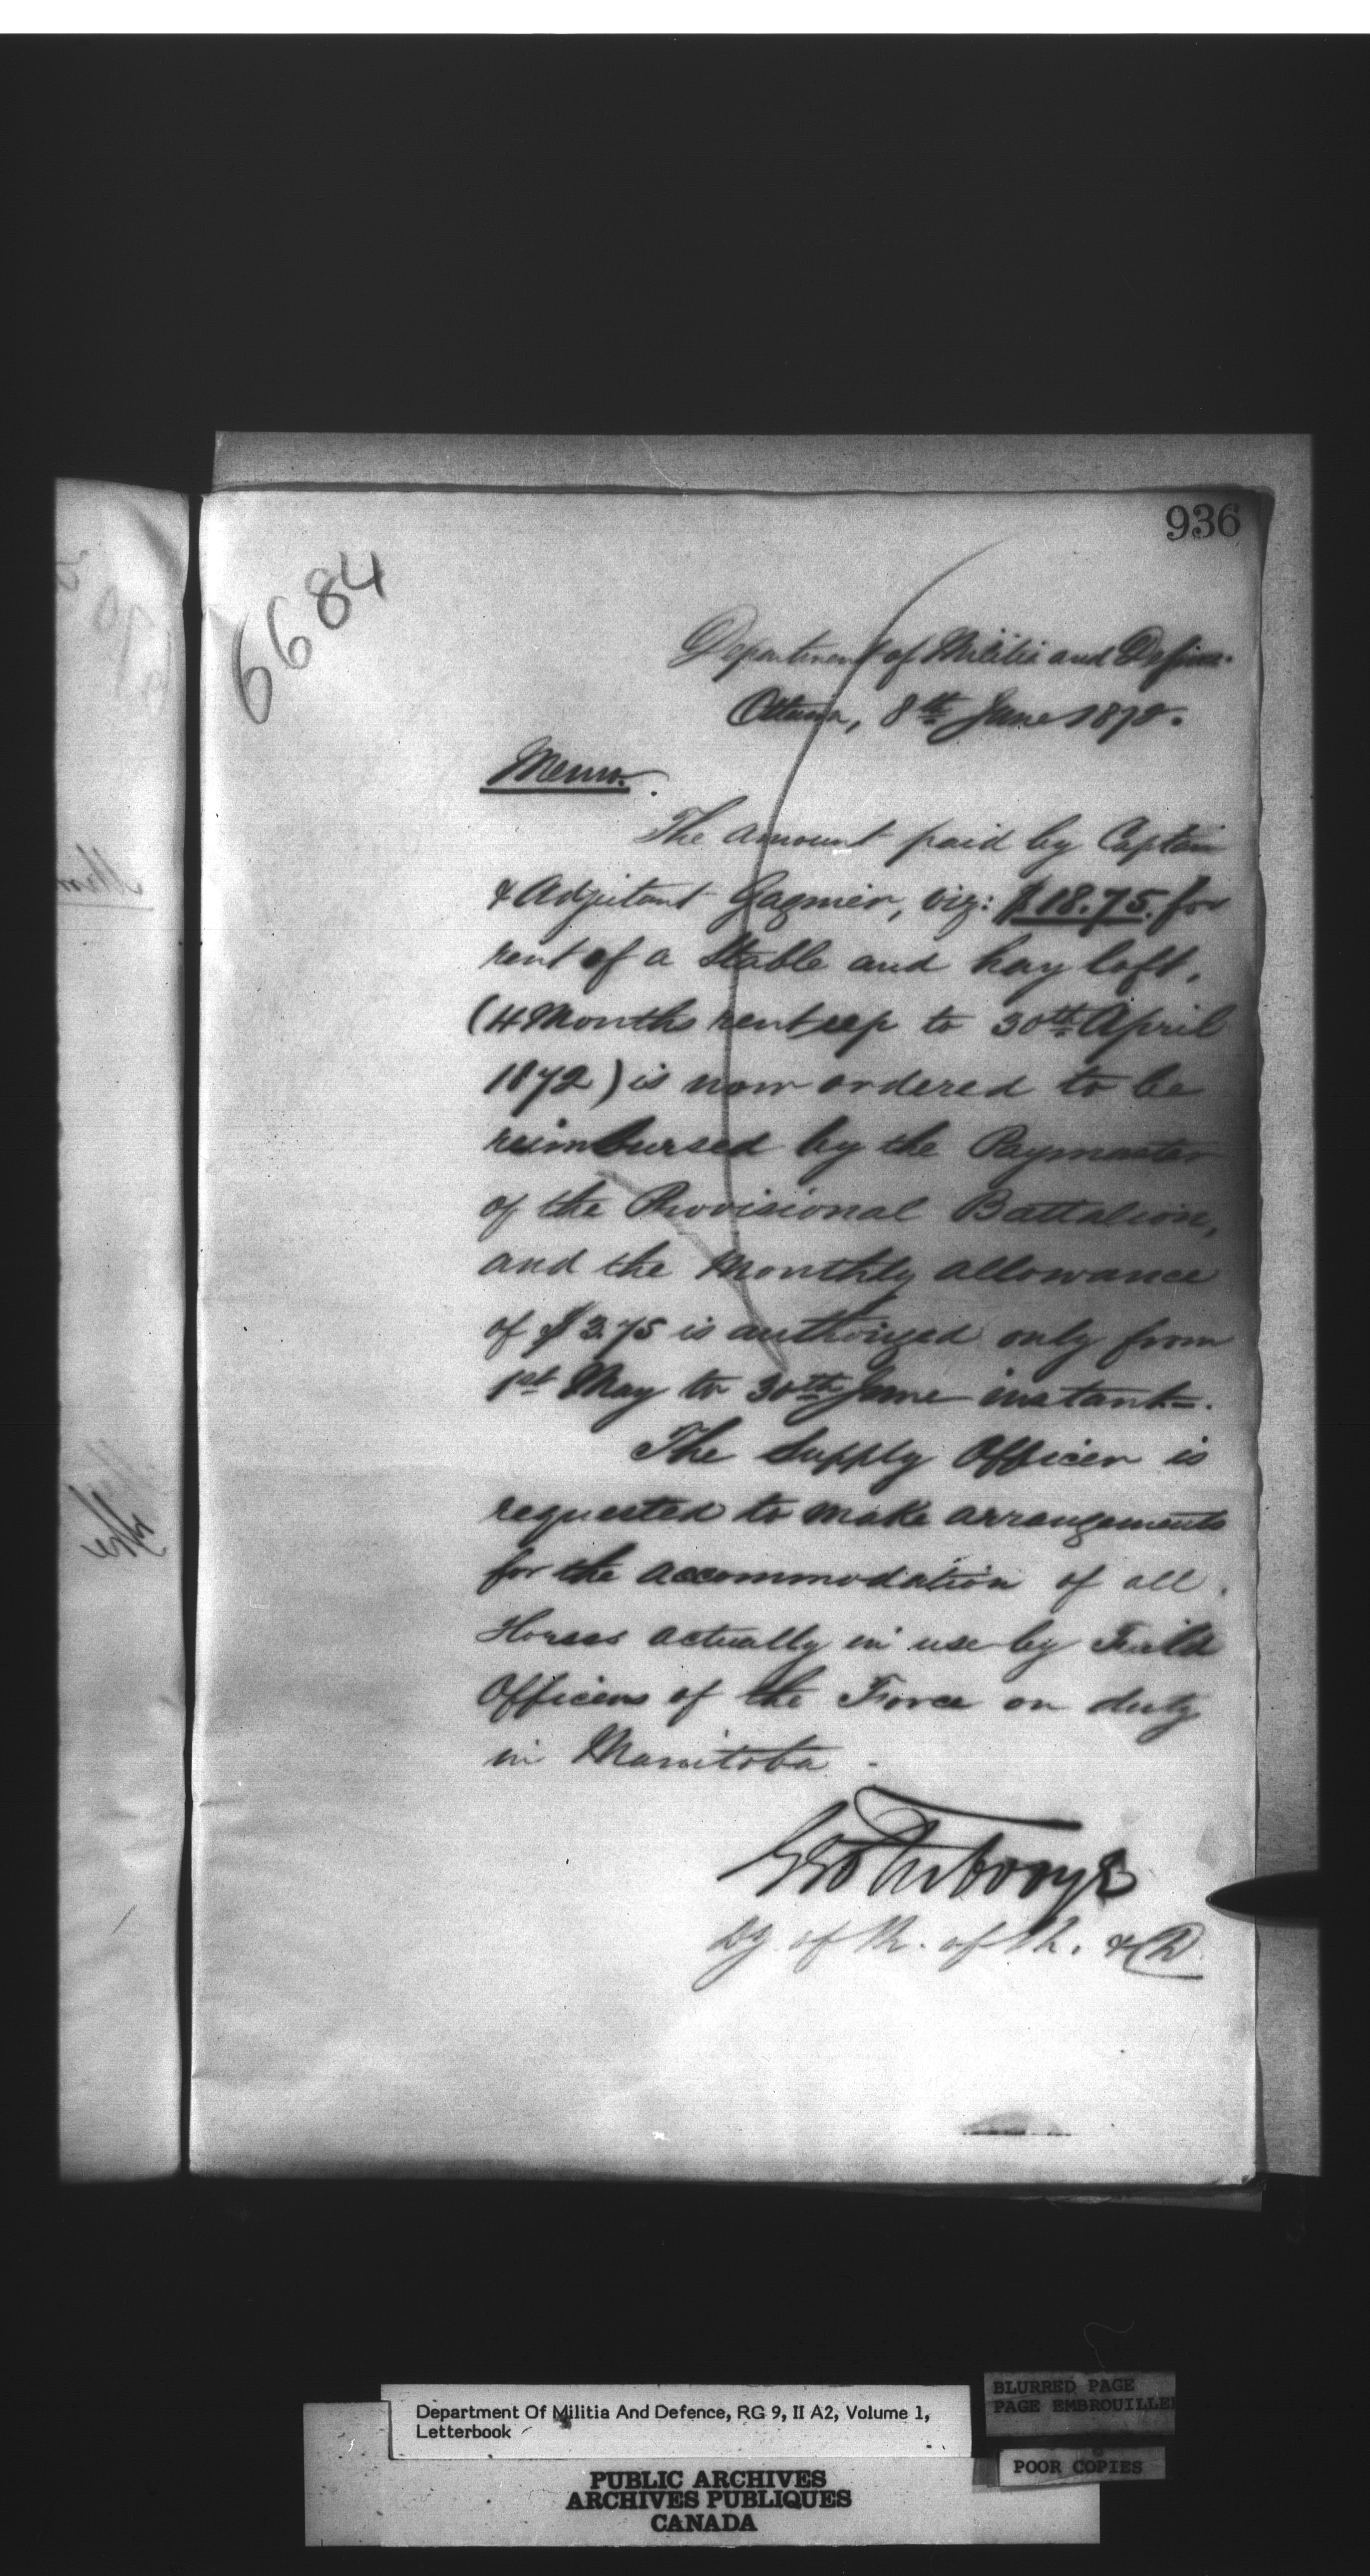 936
6684
Department of Militia and Defence.
Ottawa, 8th June 1872.
Memo.
The amount paid by Captain
& Adjutant Gagnier, viz: $18.75. for
rent of a Stable and hay loft,
(4 Months rent up to 30th April
1872) is now ordered to be
reimbursed by the Paymaster
of the Provisional Battalion,
and the Monthly allowance
of $3.75 is authorized only from
1st May to 30th June instant.
The Supply Officer is
requested to make arrangements
for the accommodation of all
Horses actually in use by Field
Officers of the Force on duty
in Manitoba.
Geo Futvoye
Dy of M. of M. & D
Department Of Militia And Defence, RG 9, II A2, Volume 1,
Letterbook
BLURRED PAGE
PAGE EMBROUILLEE
POOR COPIES
PUBLIC ARCHIVES
ARCHIVES PUBLIQUES
CANADA